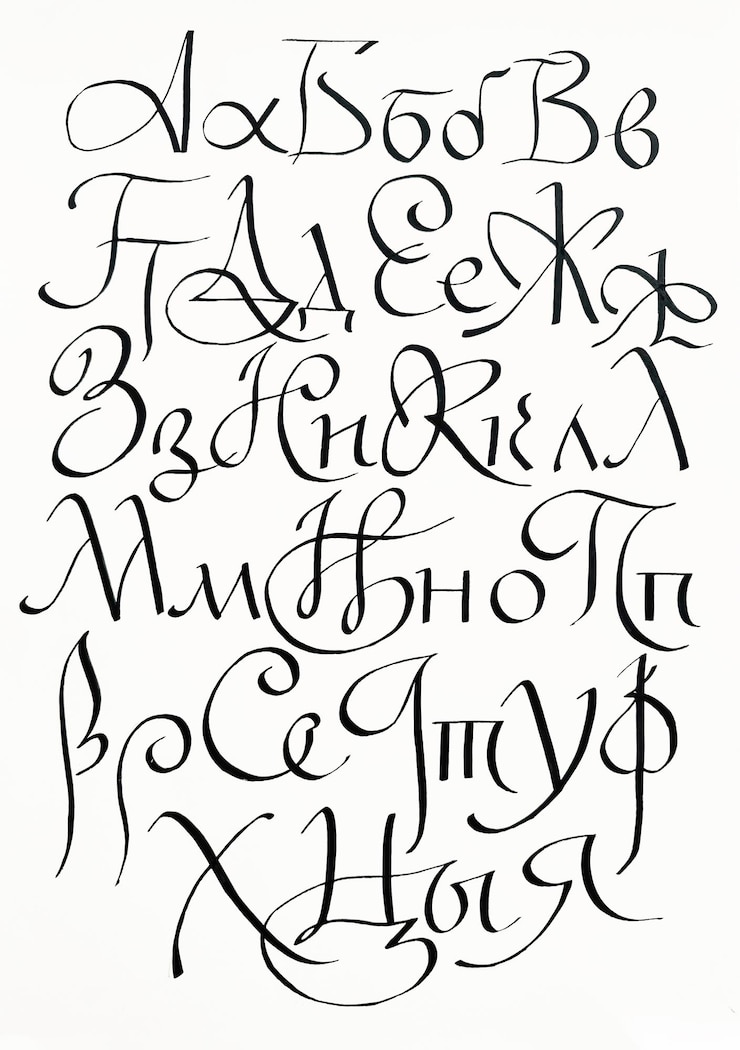 АаБббВв
ГтДдЕеЖж
ЗзИиКклЛ
МмНноПп
РрСсТтуф
ХЦыя